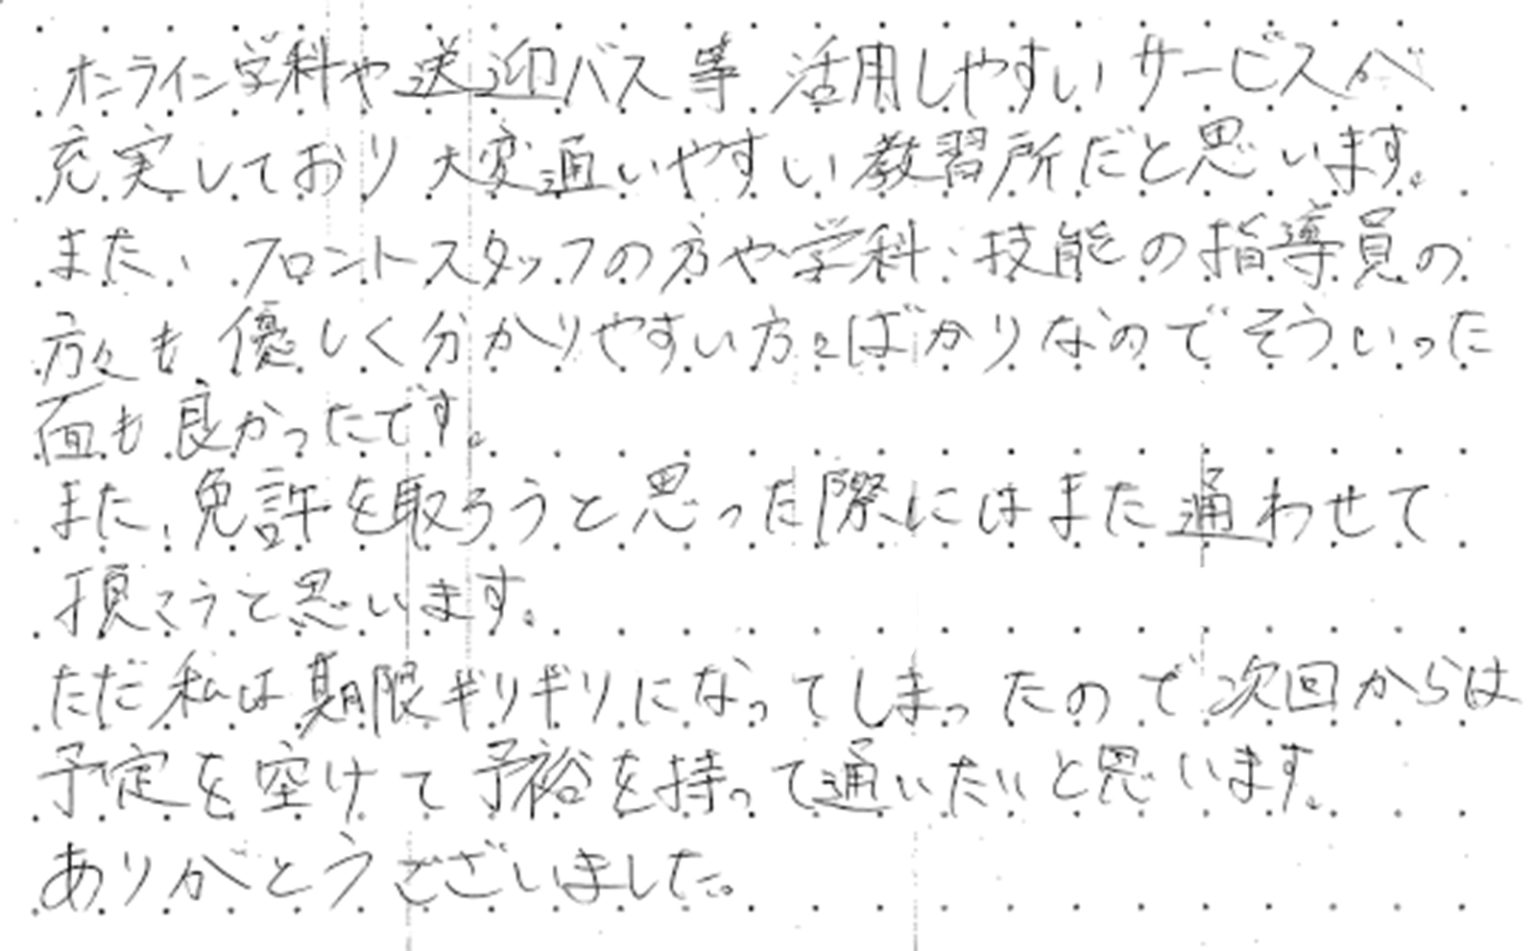 オンライン学科や送迎バス等 活用しやすいサービスが
充実しており大変通いやすい教習所だと思います。
また、フロントスタッフの方や学科、技能の指導員の
方々も優しく分かりやすい方々ばかりなのでそういった
面も良かったです。
また、免許を取ろうと思った際にはまた通わせて
頂こうと思います。
ただ私は期限ギリギリになってしまったので次回からは
予定を空けて予裕を持って通いたいと思います。
ありがとうございました。